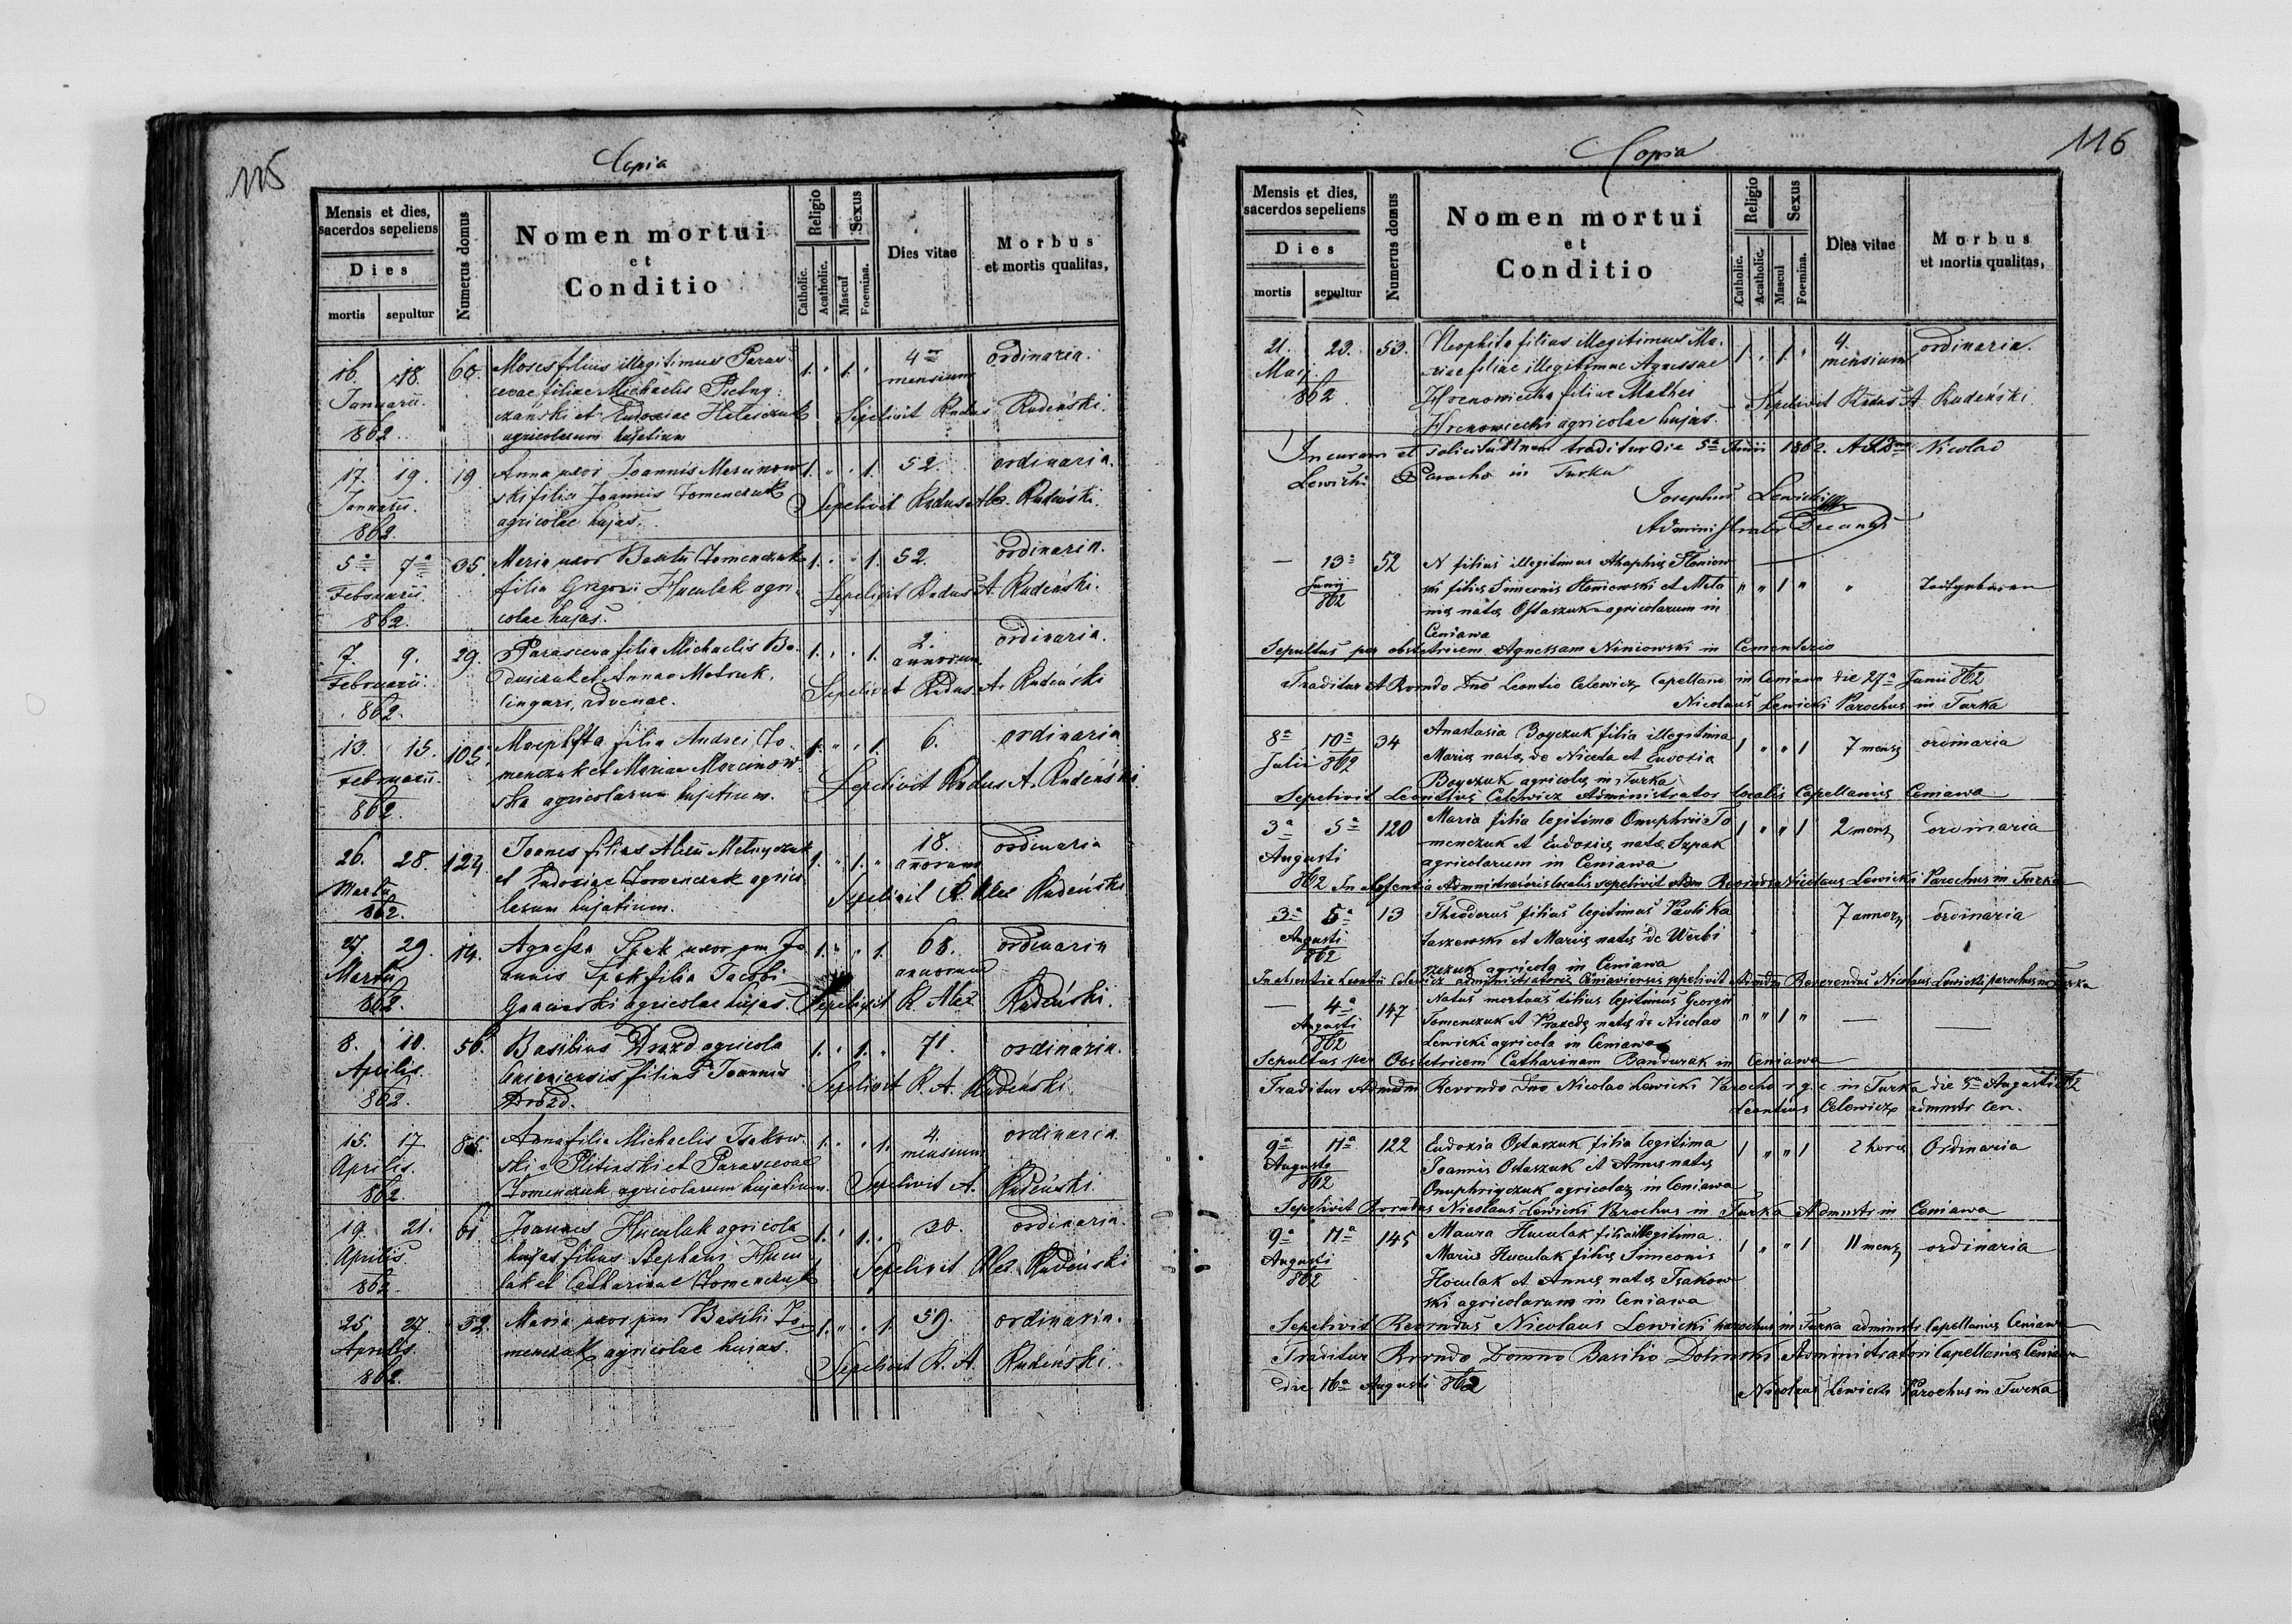 115
Copia
Mensis et dies,
sacerdos sepeliens
Dies
mortis sepultur
Numerus domus
Nomen mortui
et
Conditio
Religio
Catholic.
Acatholic.
Sexus
Mascul
Foemina.
Dies vitae
Morbus
et mortis qualitas,
16. 18. 60. Moses filius illegitimus Paras- 1. " 1. " 4 ordinaria.
Januarii. cevae filiae Michaelis mensium
862. et Eudoxiae Sepelivit Rudus Rudeński.
agricolarum hujatium
17. 19. 19. Anna uxor Joannis Marcinow 1. " " 1. 52. ordinaria.
Januarii. ski filia Joannis Tomenczuk
862. agricolae hujas. Sepelivit Rudus Alex. Rudeński.
5a 7a 35. Maria uxor Basilii Tomenczuk 1. " " 1. 52. ordinaria.
Februarii filia Gregorii Huculak agri-
862. colae hujas. Sepelivit Rudus A. Rudeński.
7. 9. 29. Parasceva filia Michaelis Bo- 1. " " 1. 2. ordinaria.
Februarii. et Annae Matruk, annorum
862. advenae. Sepelivit Rudus A. Rudeński
13. 15. 105. filia Andrei To- 1. " " 1. 6. ordinaria
Februarii. menczuk et Mariae Marcinow-
862. ska agricolarum hujatium. Sepelivit Rudus A. Rudeński.
26. 28. 124. Joanes filius Alexii Melnyczuk 1. " 1. " 18. ordinaria
Martii et Eudoxiae Tomenczuk agrico annorum
862. larum hujatium. Sepelivit R. Alex Rudeński
27. 29. 14. Agnessa Spak uxor pm Jo 1. " " 1. 68. ordinaria
Martii annis Spak filia Jacobi annorum
862. agricolae hujas. Sepelivit R. Alex. Rudeński.
8. 10. 56. Basilius Drozd agricola 1. " 1. " 71. ordinaria.
Aprilis. filius Joannis
862. Drozd. Sepelivit R. A. Rudeński
15. 17 85. Anna filia Michaelis Isakow- 1. " " 1. 4. ordinaria
Aprilis. ski et Parascevae mensium
862. Tomenczuk agricolarum hujatium. Sepelivit A. Rudeński
19. 21. 61. Joannes Huculak agricola 1. " 1. " 30. ordinaria.
Aprilis hujas filius Stephani Hucu
862 lak et Catharinae Tomenczuk Sepelivit Alex. Rudeński
25. 27. 52. Maria uxor pm Basilii To- 1. " " 1. 59. ordinaria.
Aprilis. menczuk agricolae hujas.
862. Sepelivit R. A. Rudeński.
116
Copia
Mensis et dies,
sacerdos sepeliens
Dies
mortis sepultur
Numerus domus
Nomen mortui
et
Conditio
Religio
Catholic.
Acatholic.
Sexus
Mascul
Foemina.
Dies vitae
Morbus
et mortis qualitas,
21. 23. 53. Neophita filius illegitimus Ma- 1 " 1. " 4. ordinaria.
Maij. riae filiae illegitimae Agnessae mensium
862 filiae Mathei Sepelivit Rudus A. Rudeński
agricolae hujas.
In curam et solicitudinem traditur die 5a Junii 1862. Nicolao
Lewicki Parocho in Turka
Josephus Lewicki
Administrator Decanas
— 13a 52 N filius illegitimus Ahaphiae Słoniow —
Junij ski filiae Simeonis Słoniowski et Mela " " 1 " "
862 niae natae Ostaszuk agricolarum in
Ceniawa
Sepultus per obstetricem Agnessam Niniowski in Cementerio
Traditur A Rvrndo Dno Leontio Celewicz Capellano in Ceniawa die 27a Junii 862
Nicolaus Lewicki Parochus in Turka
8a 10a 34 Anastasia Boyczuk filia illegitima 1 " " 1 7 mens ordinaria
Julii 862 Mariae natae de Niceta et Eudoxia
Boyczuk agricolis in Turka
Sepelivit Leontius Celewicz Administrator localis Capellaniae Ceniawa
3a 5a 120 Maria filia legitima Onuphrii To 1 " " 1 2 mens ordinaria
Augusti menczuk et Eudoxiae natae Szpak
agricolarum in Ceniawa
862 In Absentia Administratoris localis sepelivit Adm Rvrndus Nicolaus Lewicki Parochus in Turka
3a 5a 13 Theodorus filius legitimus Pauli Ka 7 annor ordinaria
Augusti szewski et Mariae natae de Werbi
862 agricola in Ceniawa
In absentia Leontii Celewicz administratoris Ceniaviensis sepelivit Admdm Reverendus Nicolaus Lewicki parochus in Turka
— 4a 147 Natus mortuus filius legitimus Georgii " " 1 " — —
Augusti Tomenczuk et natae de Nicolao
862 Lewicki agricola in Ceniawa
Sepultus per Obstetricem Catharinam Bandurak in Ceniawa
Traditur Admdm Rvrndo Dno Nicolao Lewicki Parocho r. g. c. in Turka die 5a Augusti 862
Leontius Celewicz admnstr Cen.
9a 11a 122 Eudoxia Ostaszuk filia legitima 1 " " 1 2 horis Ordinaria
Augusti Joannis Ostaszuk et Annae natae
862 Onuphriyczuk agricolar in Ceniawa
Sepelivit Rvrndus Nicolaus Lewicki Parochus in Turka Admnstr in Ceniawa
9a 11a 145 Maura Huculak filia illegitima 1 " " 1 11 mens ordinaria
Augusti Mariae Huculak filiae Simeonis
862 Huculak et Annae natae Isakow
ski agricolarum in Ceniawa
Sepelivit Rvrndus Nicolaus Lewicki parochus in Turka adminstr Capellaniae Ceniawa
Traditur Rvrndo Domno Basilio Dolinski Administratori Capellaniae Ceniawa
die 16a Augusti 862
Nicolaus Lewicki Parochus in Turka